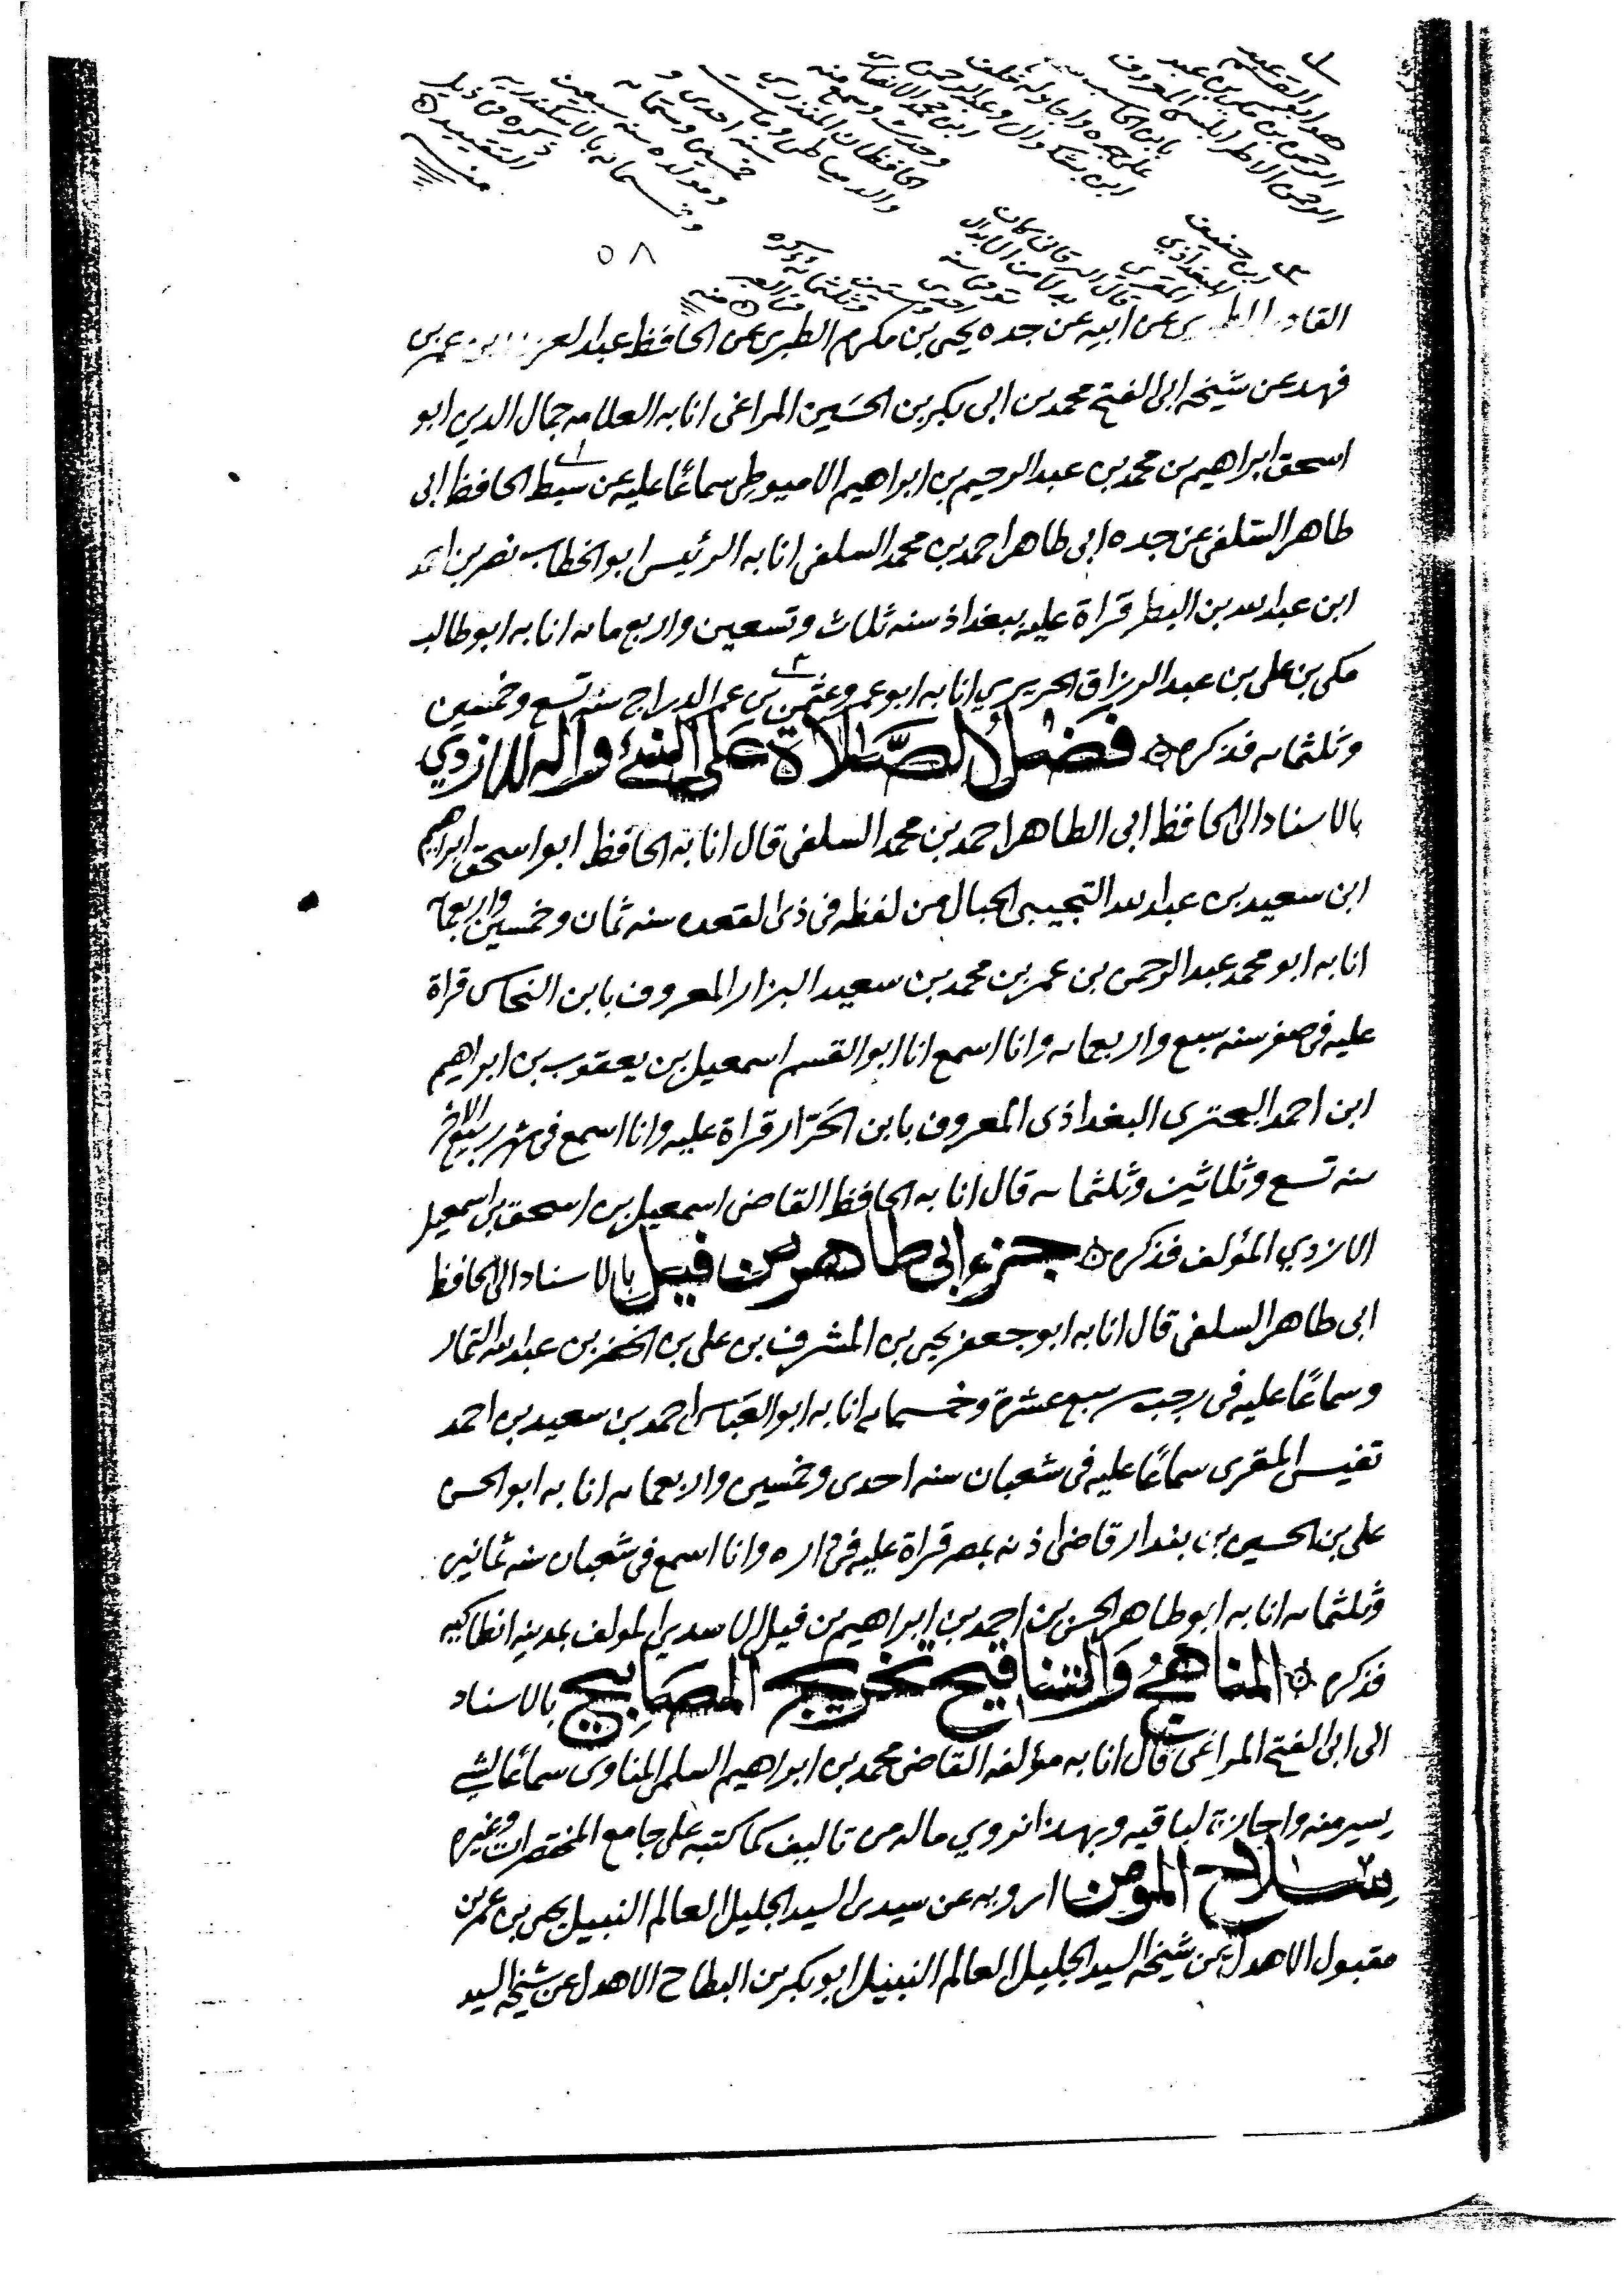 هو ابو القسم عبد
الرحمن بن مكي بن عبد
الرحمن الاطرابلسي المعروف
بابن الحاسب
على جده واجاز له خلف
ابن بشكوال وعبد الرحمن
ابن محمد
وحدث وسمع منه
الحافظان المنذري
والدمياطي ومات
سنة احدى و
خمسين وستمائة
ومولده سنة سبعين
وخمسمائة بالاسكندرية
ذكره في ذيل
التقييد
منه
٥٨
ابن حفيف
البغدادي
المقري
قال البرقاني كان
بدلا من الابدال
توفي سنة
احدى
وستين
وثلثمائة ذكره
في العبر
منه
القادر الطبري عن ابيه عن جده يحيى بن مكرم الطبري عن الحافظ عبد العزيز بن عمر بن
فهد عن شيخه ابي الفتح محمد بن ابي بكر بن الحسين المراغي انا به العلامه جمال الدين ابو
اسحق ابراهيم بن محمد بن عبد الرحيم بن ابراهيم الاميوطي سماعًا عليه عن سبط الحافظ ابي
طاهر السلفي عن جده ابي طاهر احمد بن محمد السلفي انا به الرئيس ابو الخطاب نصر بن احمد
ابن عبد الله بن البطر قراة عليه ببغداذ سنه ثلاث وتسعين واربع مايه انا به ابو طالب
مكي بن علي بن عبد الرزاق الحريري انا به ابو عمرو عثمن بن عمر الدراج سنه تسع وخمسين
وثلثمايه فذكره فضل الصلاة على النبي واله للازدي
بالاسناد الى الحافظ ابي الطاهر احمد بن محمد السلفي قال انا به الحافظ ابو اسحق ابراهيم
ابن سعيد بن عبد الله التجيبي الحبال من لفظه في ذي القعده سنه ثمان وخمسين واربعمايه
انا به ابو محمد عبد الرحمن بن عمر بن محمد بن سعيد البزار المعروف بابن النحاس قراة
عليه في صفر سنه سبع واربعمايه وانا اسمع انا ابو القسم اسمعيل بن يعقوب بن ابراهيم
ابن احمد البحتري البغداذي المعروف بابن الجرّار قراة عليه وانا اسمع في شهر ربيع الاخر
سنه تسع وثلاثين وثلثمايه قال انا به الحافظ القاضي اسمعيل بن اسحق بن اسمعيل
الازدي المؤلف فذكره جزء ابي طاهر بن فيل بالاسناد الى الحافظ
ابي طاهر السلفي قال انا به ابو جعفر يحيى بن المشرف بن علي بن الخضر بن عبد الله التمار
وسماعًا عليه في رجب سبع عشرة وخمسمايه انا به ابو العباس احمد بن سعيد بن احمد
نفيس المقري سماعًا عليه في شعبان سنه احدى وخمسين واربعمايه انا به ابو الحسن
علي بن الحسين بن بندار قاضي اذنه بمصر قراة عليه في داره وانا اسمع في شعبان سنه ثمانين
وثلثمايه انا به ابو طاهر الحسن بن احمد بن ابراهيم بن فيل الاسدي المولف بمدينه انطاكيه
فذكره المناهج والتناقيح تخريج المصابيح بالاسناد
الى ابي الفتح المراغي قال انا به مؤلفه القاضي محمد بن ابراهيم السلمي المناوي سماعًا لشي
يسير منه واجازة لباقيه وبهذا نروي ماله من تاليف كما كتبه على جامع المختصرات وغيره
سلاح المومن ارويه عن سيدي السيد الجليل العالم النبيل يحيى بن عمر بن
مقبول الاهدل عن شيخه السيد الجليل العالم النبيل ابو بكر بن البطاح الاهدل عن شيخه السيد